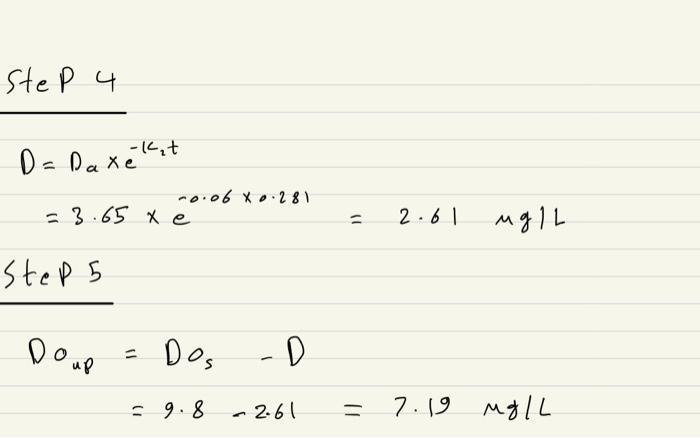 Step 4
D = Da x e^-K₂t
= 3.65 x e^-0.06 x 0.281 = 2.61 mg/L
Step 5
DOup = DOs - D
= 9.8 - 2.61 = 7.19 mg/L